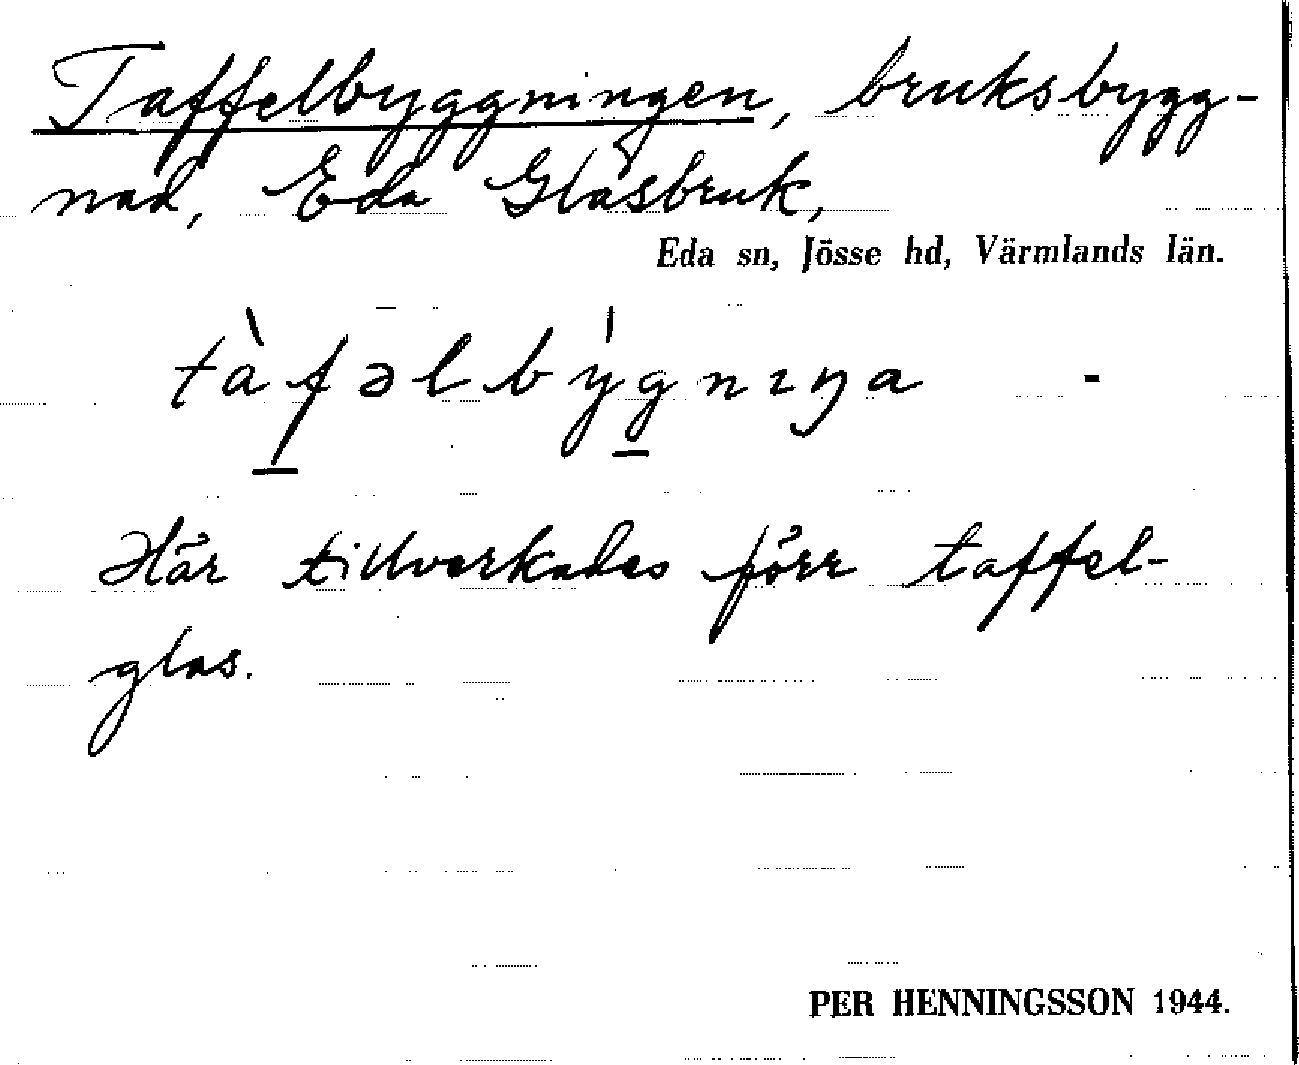 Taffelbyggningen, bruksbygg-
nad, Eda Glasbruk,
Eda sn, Jösse hd, Värmlands län.
tàf̲əlbýg̲nɪŋa -
Här tillverkades förr taffel-
glas.
PER HENNINGSSON 1944.